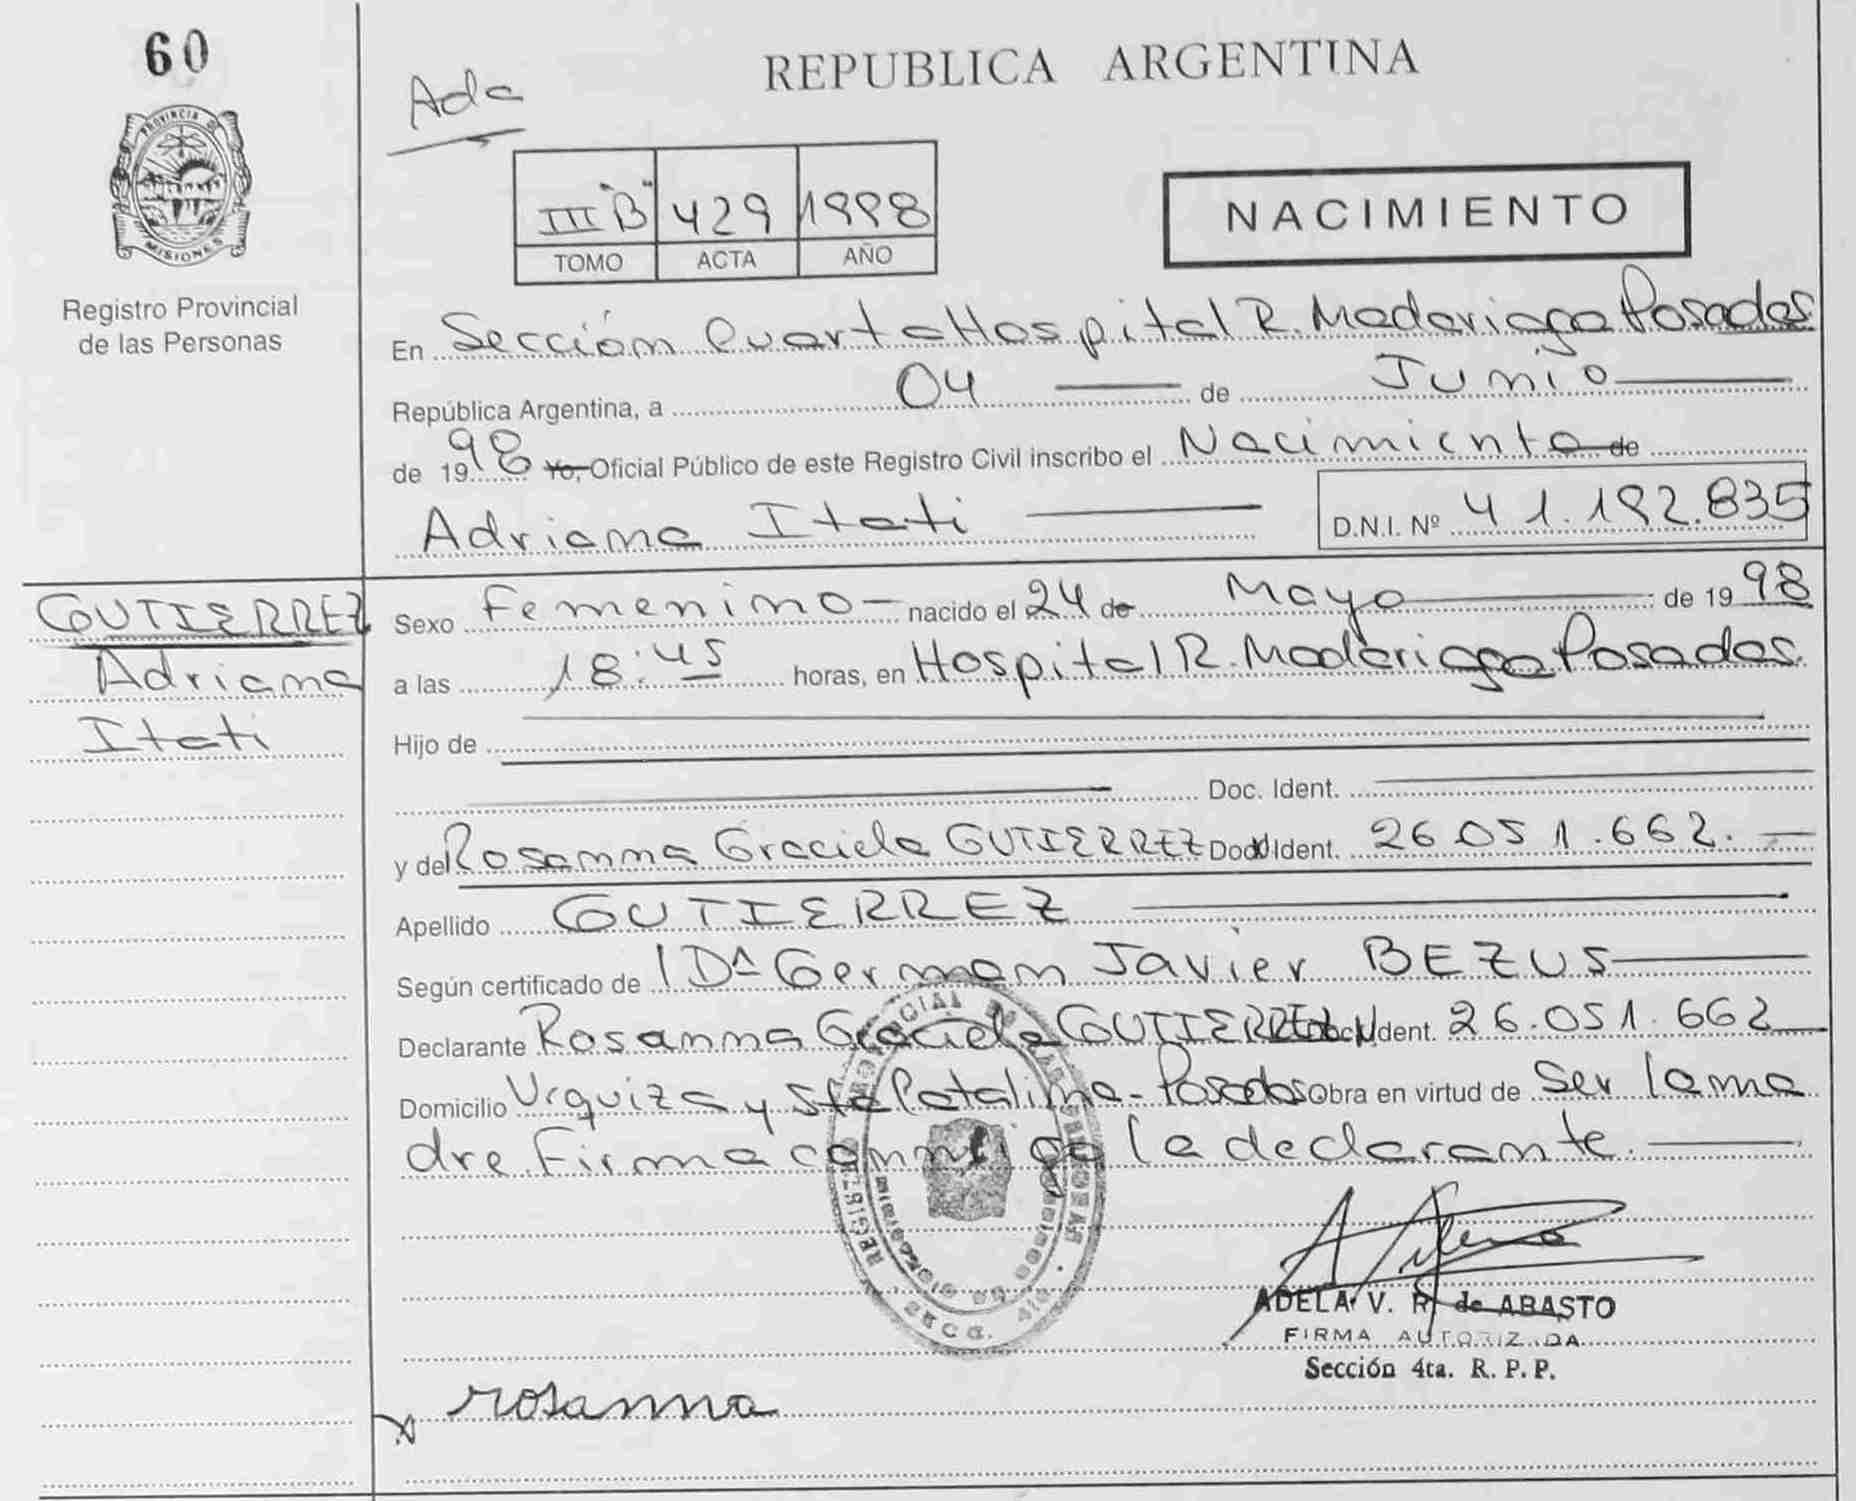 60
PROVINCIA DE
MISIONES
Registro Provincial
de las Personas
Ada
REPUBLICA ARGENTINA
III "B" 429 1998
TOMO ACTA AÑO
NACIMIENTO
En Sección Cuarta Hospital R. Madariaga Posadas
República Argentina, a 04 de Junio
de 1998 Yo, Oficial Público de este Registro Civil inscribo el Nacimiento de
Adriana Itati D.N.I. Nº 41.192.835
GUTIERREZ
Adriana
Itati
Sexo Femenino nacido el 24 de Mayo de 1998
a las 18:45 horas, en Hospital R. Madariaga Posadas.
Hijo de
Doc. Ident.
y de Rosanna Graciela GUTIERREZ Doc. Ident. 26.051.662.
Apellido GUTIERREZ
Según certificado de German Javier BEZUS
Declarante Rosanna Graciela GUTIERREZ Doc. Ident. 26.051.662
Domicilio Urquiza y Sta Catalina - Posadas Obra en virtud de Ser la ma
dre. Firma conmigo la declarante.
ADELA V. R. de ABASTO
FIRMA AUTORIZADA
Sección 4ta. R. P. P.
rosanna